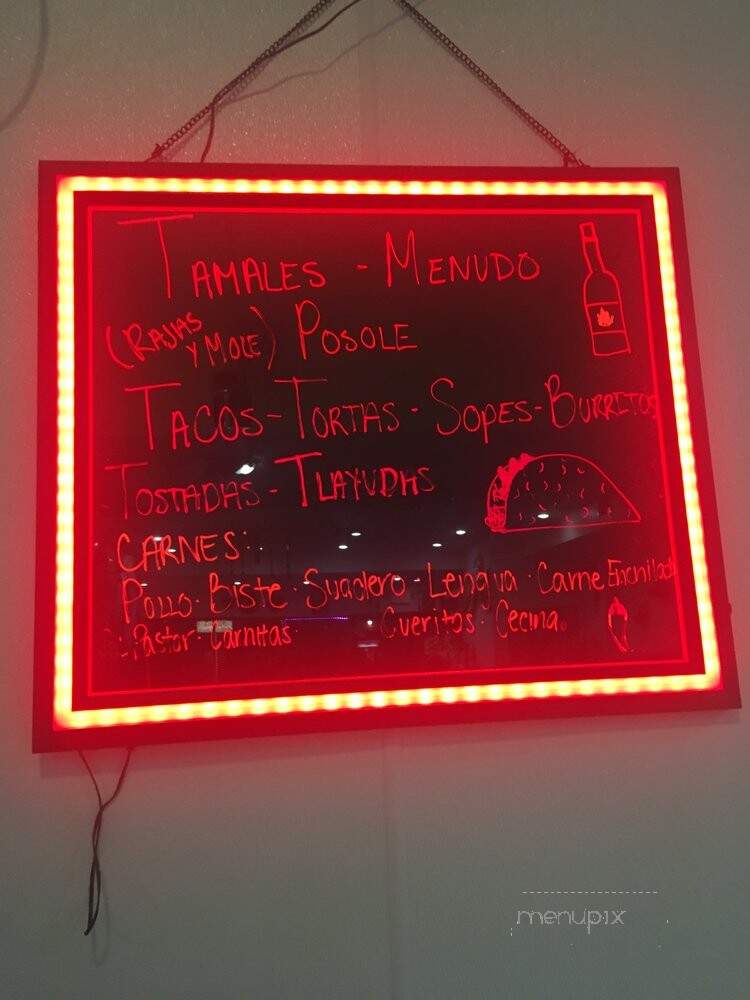 TAMALES - MENUDO
(RAJAS Y MOLE) POSOLE
TACOS - TORTAS - SOPES - BURRITOS
TOSTADAS - TLAYUDAS
CARNES:
POLLO · Biste · Suadero · Lengua · Carne Enchilada
· Pastor · Carnitas · Cueritos · Cecina
menupix